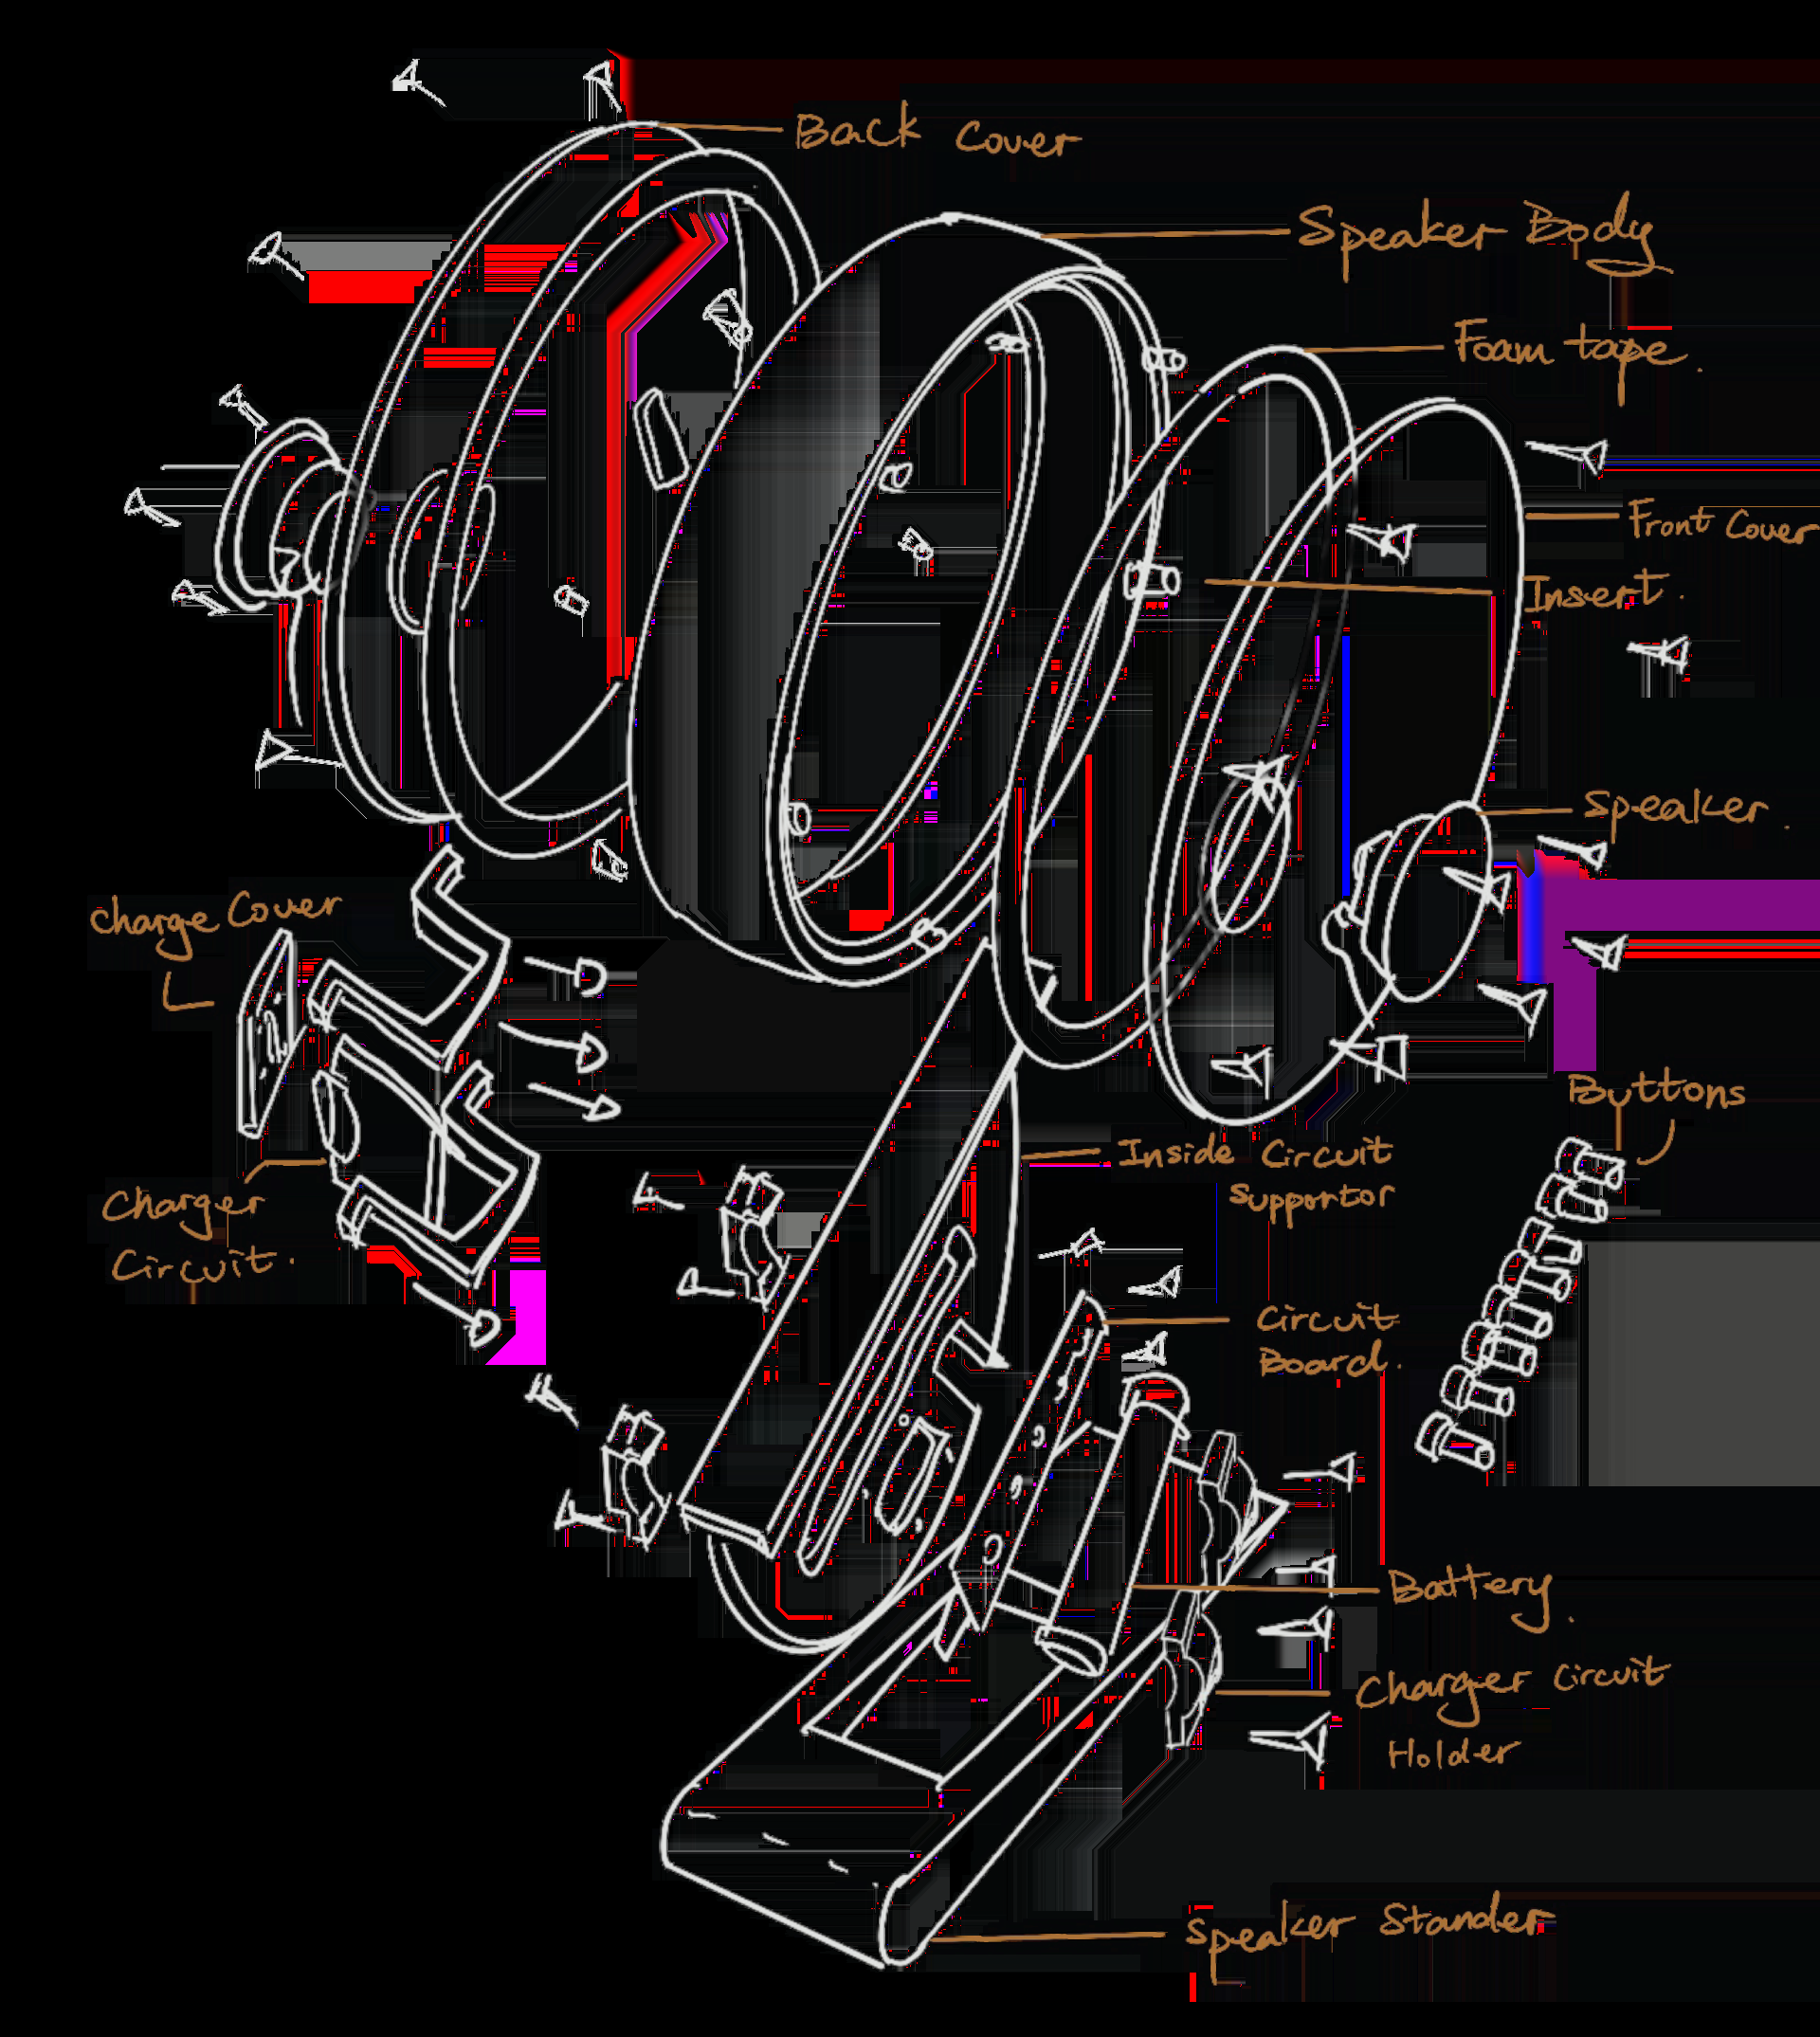 Back Cover
Speaker Body
Foam tape.
Front Cover
Insert.
Speaker.
Charge Cover
Buttons
Inside Circuit
Supportor
Charger
Circuit.
Circuit
Board.
Battery.
Charger Circuit
Holder
Speaker Stander